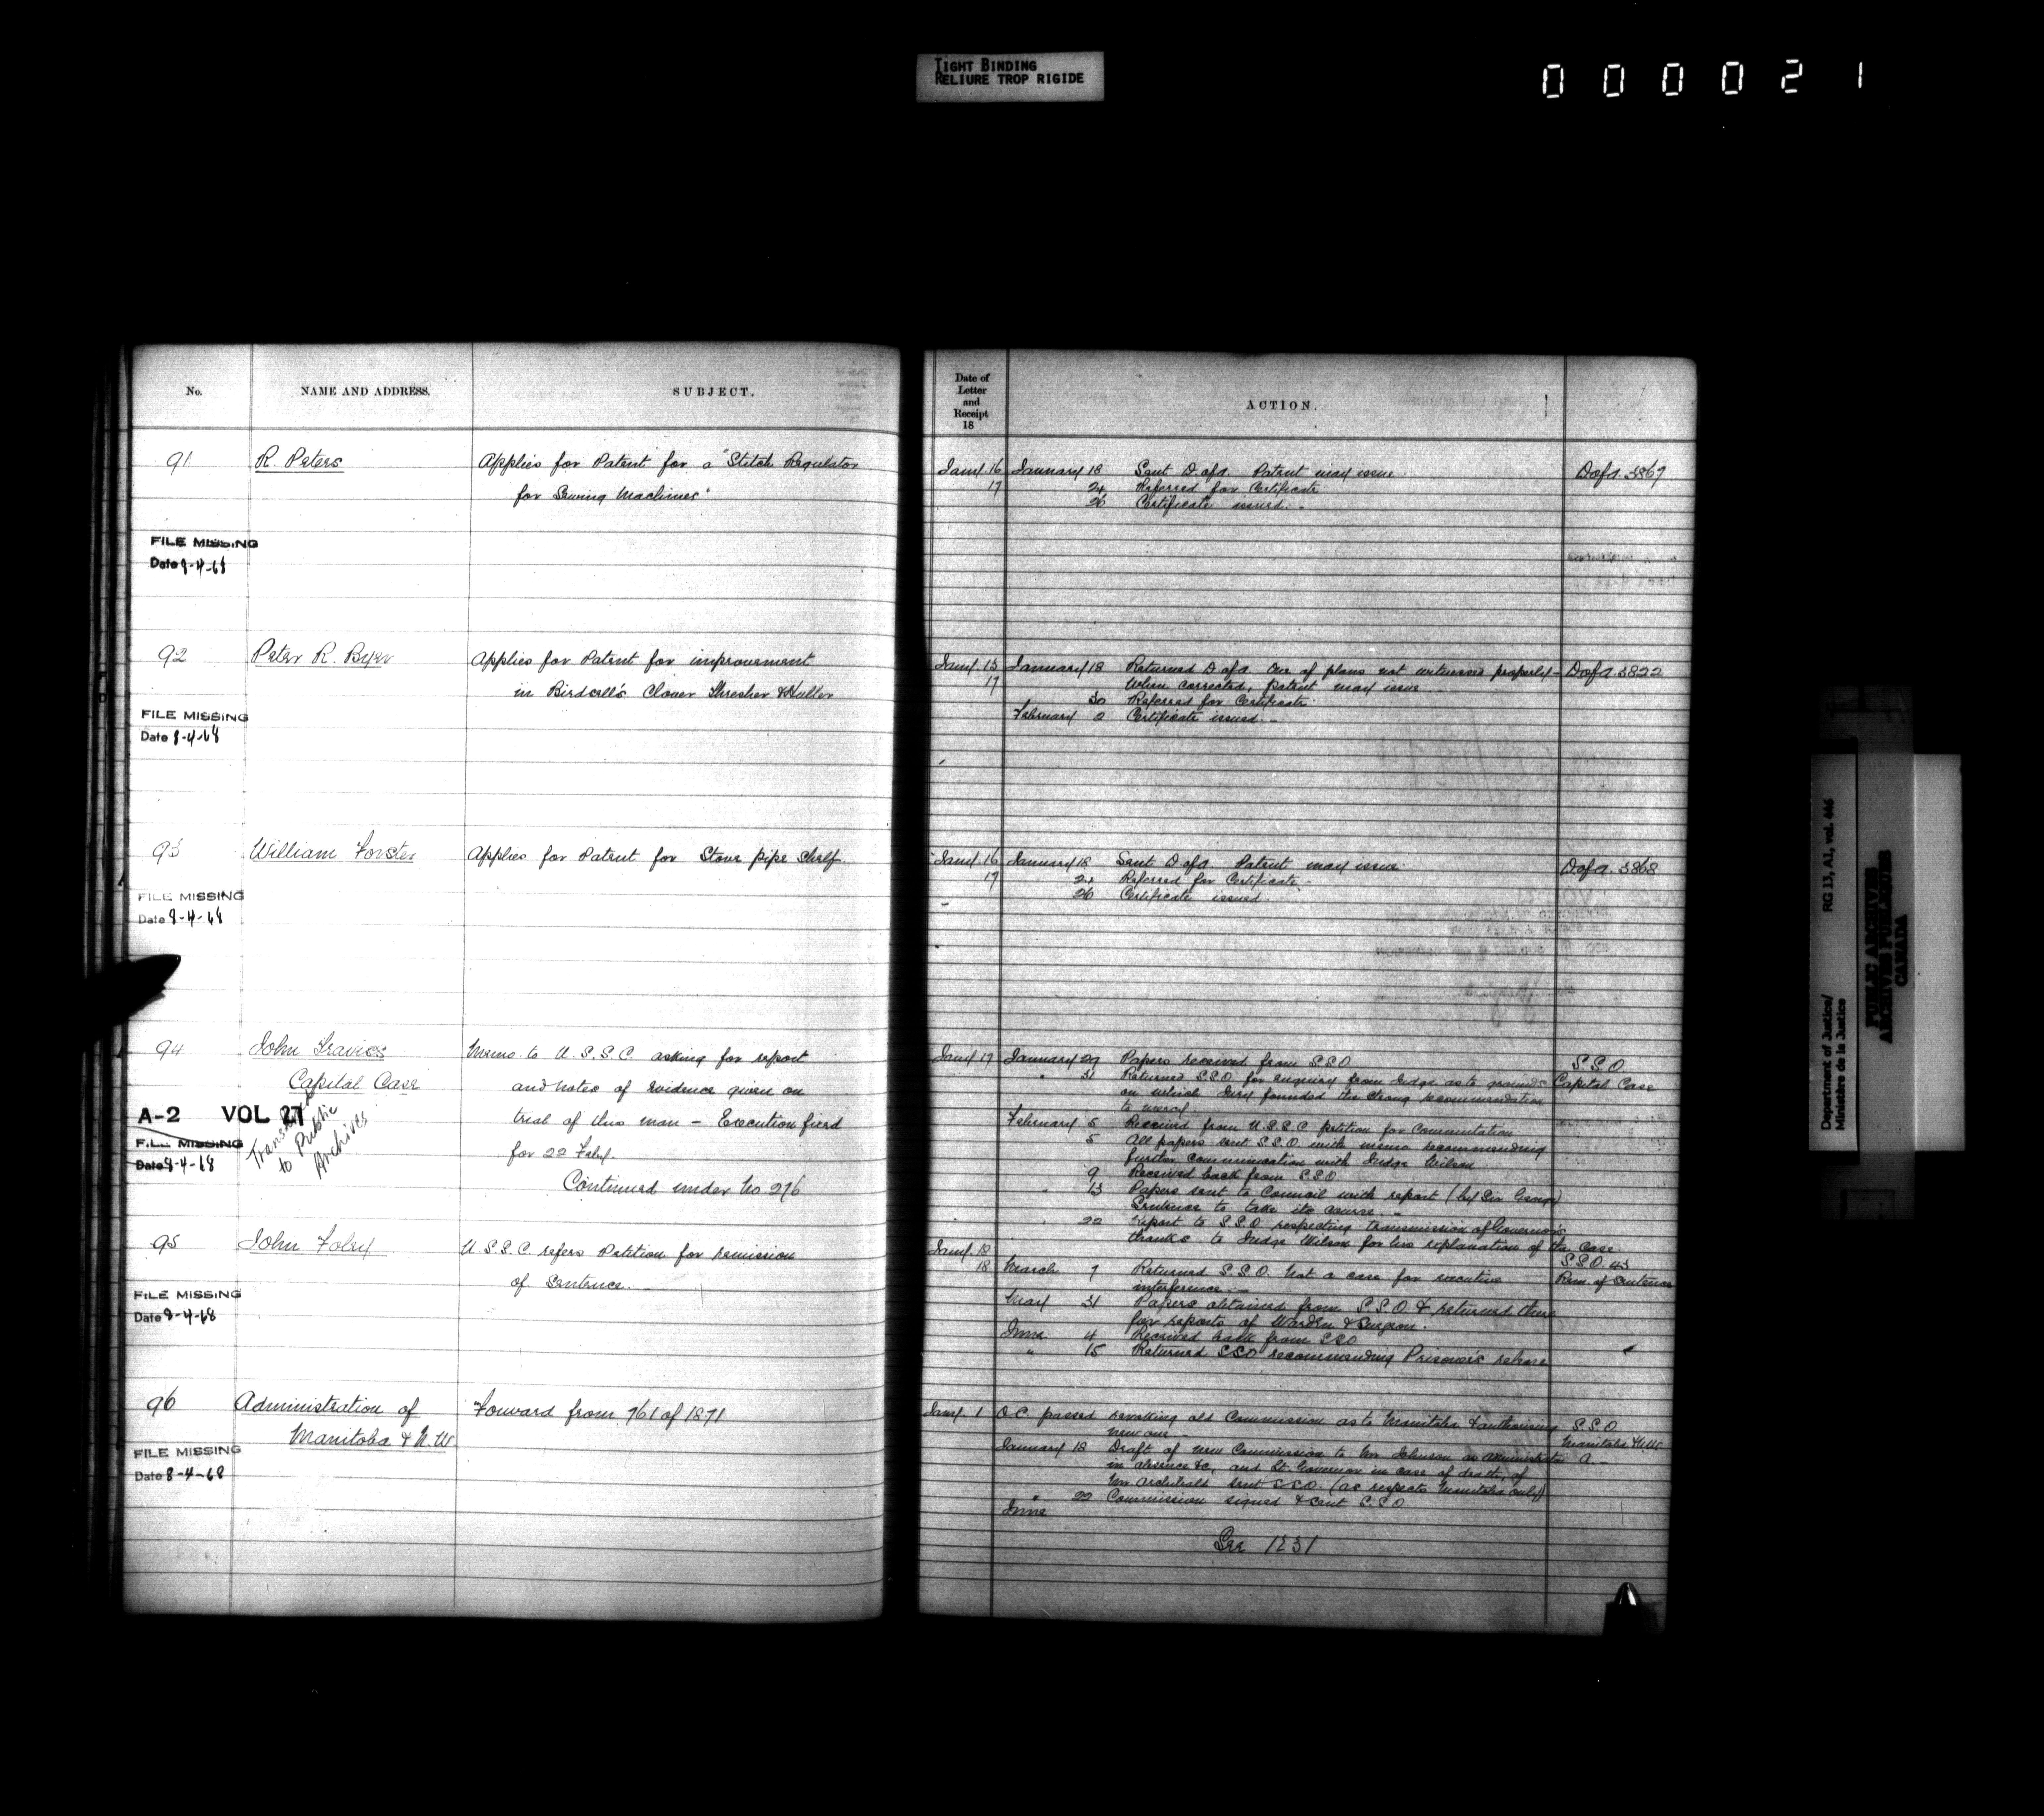 TIGHT BINDING
RELIURE TROP RIGIDE
000021
No.
NAME AND ADDRESS.
SUBJECT.
91
R. Peters
Applies for Patent for a "Stitch Regulator
for Sewing Machines"
FILE MISSING
Date 8-4-68
92
Peter R. Byer
Applies for Patent for improvement
in Birdsell's Clover Thresher & Huller
FILE MISSING
Date 8-4-68
93
William Forster
Applies for Patent for Stove pipe Shelf
FILE MISSING
Date 8-4-68
94
John Travies
Capital Case
Memo. to U.S.S.C. asking for report
and notes of evidence given on
trial of this man – Execution fixed
for 22 Feby.
Continued under No 276
A-2 VOL 27
Transferred
to Public
Archives
FILE MISSING
Date 8-4-68
95
John Foley
U.S.S.C. refers Petition for remission
of Sentence. –
FILE MISSING
Date 8-4-68
96
Administration of
Manitoba & N.W.
Forward from 761 of 1871
FILE MISSING
Date 8-4-68
Date of
Letter
and
Receipt
18
ACTION.
Jany. 16 January 18 Sent D of A. Patent may issue. D of A. 3867
17 24 Referred for Certificate
26 Certificate issued. –
Jany. 15 January 18 Returned D of A. One of plans not witnessed properly – D of A. 3822
17 When corrected, patent may issue
30 Referred for Certificate
February 2 Certificate issued. –
Jany. 16 January 18 Sent D of A. Patent may issue. D of A. 3868
17 24 Referred for Certificate. –
26 Certificate issued.
Jany. 17 January 29 Papers received from S.S.O S.S.O
31 Returned S.S.O. for enquiry from Judge as to grounds Capital Case
on which Jury founded the strong recommendation
to mercy.
February 5 Received from U.S.S.C. petition for Commutation
5 All papers sent S.S.O. with memo recommending
further communication with Judge Wilson
9 Received back from S.S.O
13 Papers sent to Council with report (by Sir George)
Sentence to take its course. –
22 Report to S.S.O respecting transmission of Governor's
thanks to Judge Wilson for his explanation of the Case
Jany. 18 S.S.O. 43
18 March 7 Returned S.S.O. Not a case for executive Rem. of Sentence
interference. –
May 31 Papers obtained from S.S.O. & returned there
for reports of Warden & Surgeon.
June 4 Received back from S.S.O
" 15 Returned S.S.O recommending Prisoner's release
Jany. 1 O.C. passed revoking old Commission as to Manitoba & authorising S.S.O
new one – Manitoba & N.W.
January 18 Draft of new Commission to Mr. Johnson as Administrator A –
in absence &c, and Lt. Governor in case of death, of
Mr. Archibald sent S.S.O. (as respects Manitoba only)
" 22 Commission signed & sent S.S.O
June
See 1231
Department of Justice/
Ministère de la Justice
RG 13, A1, vol. 446
PUBLIC ARCHIVES
ARCHIVES PUBLIQUES
CANADA